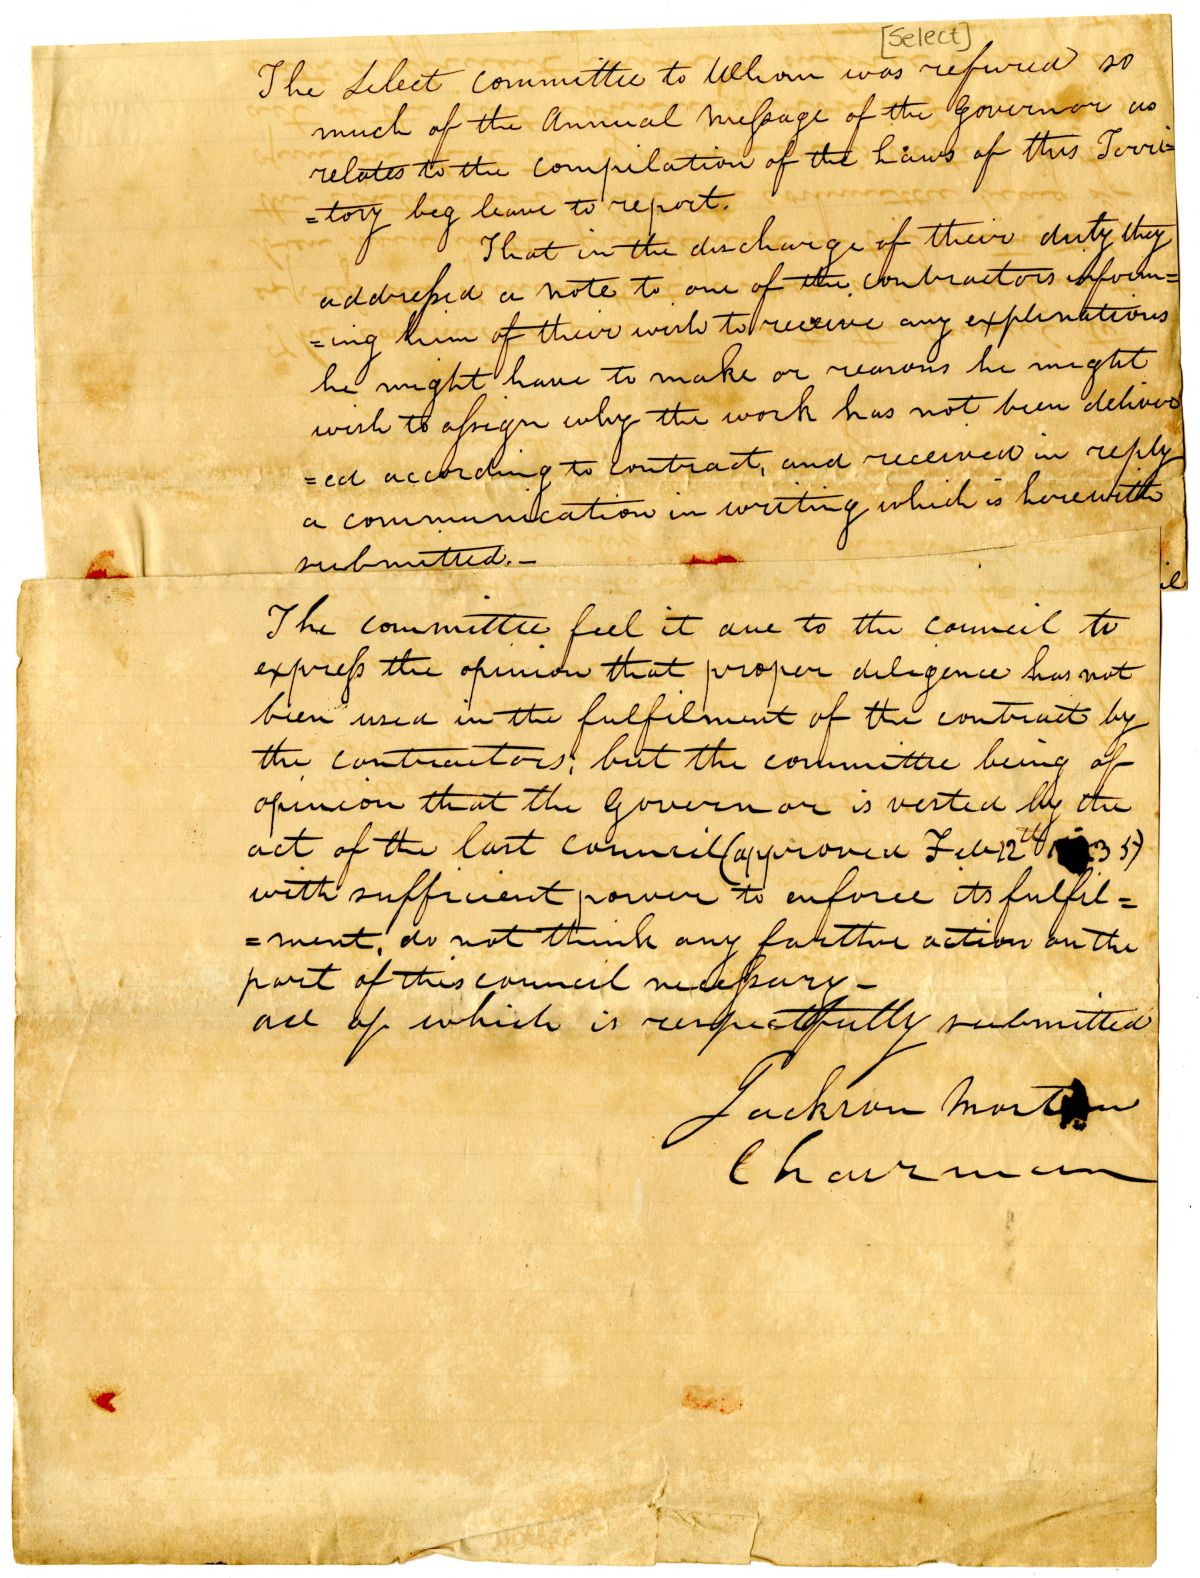 [Select]
The Select committee to Whom was refered so
much of the Annual Message of the Governor as
relates to the compilation of the Laws of this Terri=
=tory beg leave to report.
That in the discharge of their duty they
addressed a note to one of the contractors inform=
=ing him of their wish to receive any explinations
he might have to make or reasons he might
wish to assign why the work has not been deliver
=ed according to contract, and received in reply
a communication in writing which is herewith
submitted.—
The committee feel it due to the council to
express the opinion that proper diligence has not
been used in the fulfilment of the contract by
the contractors; but the committee being of
opinion that the Governor is vested by the
act of the last council (approved Feb 12th 35)
with sufficient power to enforce its fulfil=
=ment, do not think any farther action on the
part of this council necessary—
all of which is respectfully submitted
Jackson Morton
Chairman